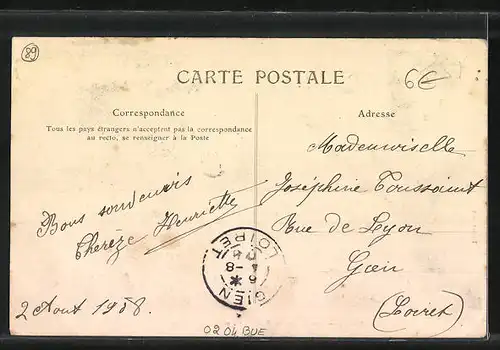 89
CARTE POSTALE
6€
Correspondance
Tous les pays étrangers n'acceptent pas la correspondance
au recto, se renseigner à la Poste
Adresse
Mademoiselle
Joséphine Toussaint
Rue de Lyon
Gien
(Loiret)
Bons souvenirs
Thérèze Henriette
2 Aout 1908.
GIEN LOIRET
0204BUE